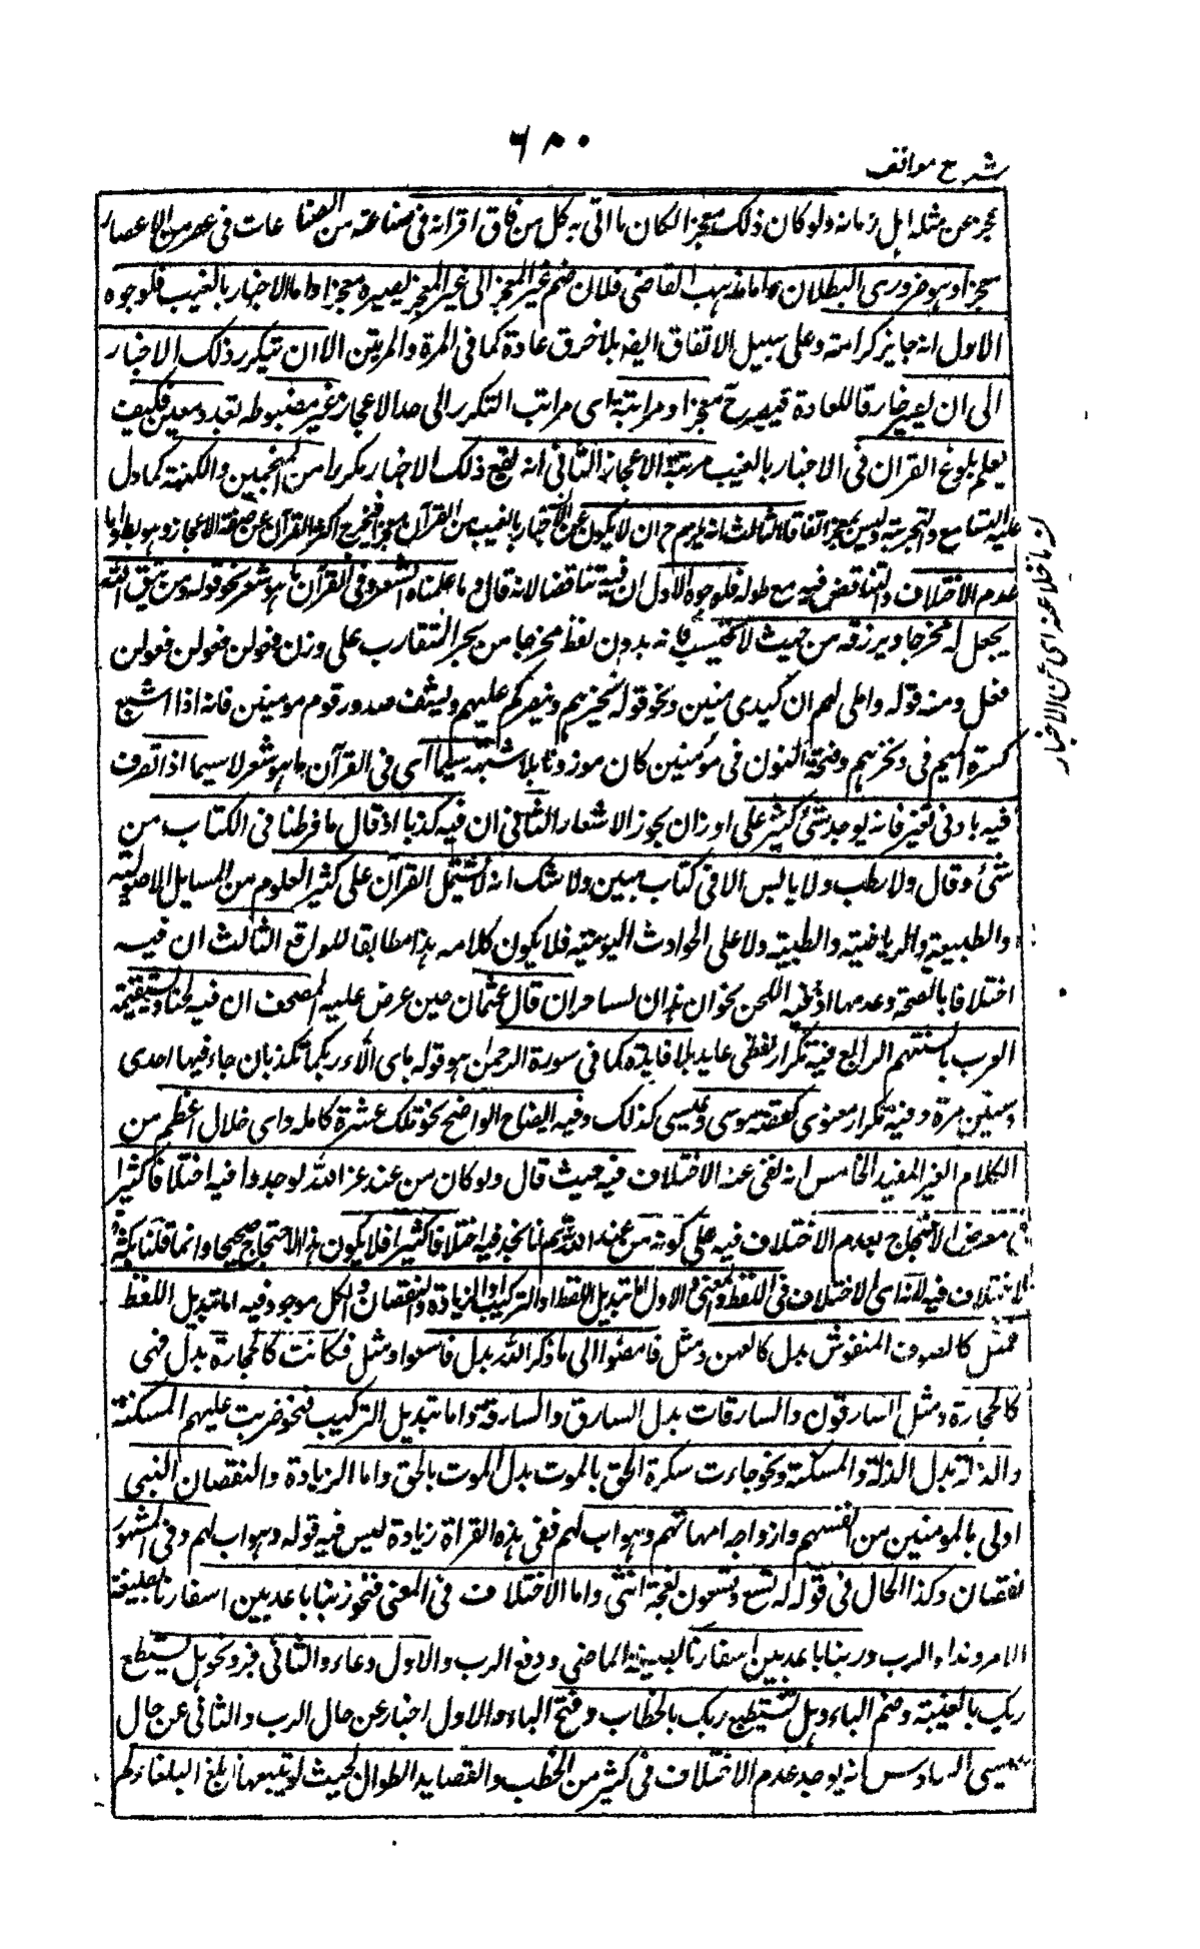 ٦٨٠
شرح مواقف
عجز عن مثله اہل زمانہ ولو كان ذلك معجزا لكان ما اتى بہ كل من فاق اقرانہ فى صناعة من الصناعات فى عصر من الاعصار
معجزا وہو ضرورى البطلان واما مذہب القاضى فلان ضم غير المعجز الى غير المعجز لا يصيره معجزا واما الاخبار بالغيب فلوجوه
الاول انہ جائز كرامة وعلى سبيل الاتفاق ايضا بلا خرق عادة كما فى المرة والمرتين الا ان يتكرر ذلك الاخبار
الى ان يصير خارقا للعادة فيصير ح معجزا ومراتبہ اى مراتب التكرر الى حد الاعجاز غير مضبوطة بعدد معين فكيف
يعلم بلوغ القران فى الاخبار بالغيب مرتبة الاعجاز الثانى انہ يقع ذلك الاخبار مكررا من المنجمين والكہنة كما دل
عليہ التسامع والتجربة وليس بمعجز اتفاقا الثالث انہ يلزم ح ان لا يكون ما خلا عن الاخبار بالغيب من القرآن معجزا فيخرج اكثر القرآن عن صفة الاعجاز وہو بط واما
عدم الاختلاف والتناقض فيہ مع طولہ فلوجوه الاول ان فيہ تناقضا لانہ قال وما علمناه الشعر وفى القرآن ما ہو شعر نحو قولہ ومن يتق اللہ
يجعل لہ مخرجا ويرزقہ من حيث لا يحتسب فانہ بدون لفظ مخرجا من بحر المتقارب على وزن فعولن فعولن فعولن
فعل ومنہ قولہ واملى لہم ان كيدى متين ونحو قولہ ويخزہم وينصركم عليہم ويشف صدور قوم مومنين فانہ اذا اشبع
كسرة الميم فى ويخزہم وفتحة النون فى مؤمنين كان موزونا بلا شبہة سيما اى فى القرآن ما ہو شعر لا سيما اذا تصرف
فيہ بادنى تغير فانہ يوجد شئ كثير على اوزان بحور الاشعار الثانى ان فيہ كذبا اذ قال ما فرطنا فى الكتاب من
شئ وقال ولا رطب ولا يابس الا فى كتاب مبين ولا شك انہ لا يشتمل القرآن على كثير العلوم من المسايل الاصولية
والطبيعية والرياضية والطبية ولا على الحوادث اليومية فلا يكون كلامہ ہذا مطابقا للواقع الثالث ان فيہ
اختلافا بالصحة وعدمہا اذ فيہ اللحن نحو ان ہذان لساحران قال عثمان حين عرض عليہ المصحف ان فيہ لحنا وستقيمہ
العرب بالسنتہم الرابع فيہ تكرار لفظى عايد بلا فايدة كما فى سورة الرحمن ہو قولہ باى الآء ربكما تكذبان جاء فيہا احدى
وستين مرة وفيہ تكرار معنوى كقصة موسى وعيسى كذلك وفيہ ايضاح الواضح نحو تلك عشرة كاملة واى خلال اعظم من
الكلام الغير المفيد الخامس انہ نفى عنہ الاختلاف فيہ حيث قال ولو كان من عند غير اللہ لوجدوا فيہ اختلافا كثيرا
فى معرض الاحتجاج بعدم الاختلاف فيہ على كونہ من عند اللہ ثم انا نجد فيہ اختلافا كثيرا فلا يكون ہذا الاحتجاج صحيحا وانما قلنا بكثرة
الاختلاف فيہ لانہ اى الاختلاف فى اللفظ والمعنى والاول اما تبديل اللفظ او التركيب او الزيادة والنقصان والكل موجود فيہ اما تبديل اللفظ
فمثل كالصوف المنفوش بدل كالعہن ومثل فامضوا الى ما ذكر اللہ بدل فاسعوا ومثل فكانت كالحجارة بدل فہى
كالحجارة ومثل السارقون والسارقات بدل السارق والسارقة واما تبديل التركيب فنحو ضربت عليہم المسكنة
والذلة بدل الذلة والمسكنة ونحو جاءت سكرة الحق بالموت بدل الموت بالحق واما الزيادة والنقصان النبى
اولى بالمومنين من انفسہم وازواجہ امہاتہم وہو اب لہم ففى ہذه القراة زيادة ليس فيہ قولہ وہو اب لہم وفى المشہور
نقصان وكذا الحال فى قولہ لہ تسع وتسعون نعجة انثى واما الاختلاف فى المعنى فنحو ربنا باعد بين اسفارنا بصيغة
الامر ونداء الرب وربنا باعد بين اسفارنا بصيغة الماضى ورفع الرب والاول دعاء والثانى خبر ونحو ہل يستطيع
ربك بالغيبة وضم الباء وہل تستطيع ربك بالخطاب وفتح الباء والاول اخبار عن حال الرب والثانى عن حال
عيسى السادس انہ يوجد عدم الاختلاف فى كثير من الخطب والقصايد الطوال بحيث لو تتبعہا ابلغ البلغاء لم
ن ما خلا عنہ اى عن الاخبار